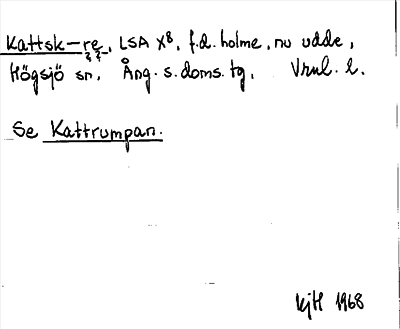 Kattsk-re, LSA X8, f.d. holme, nu udde,
Högsjö sn, Ång. s. doms. tg, Vrnl. l.
Se Kattrumpan.
KjH 1968